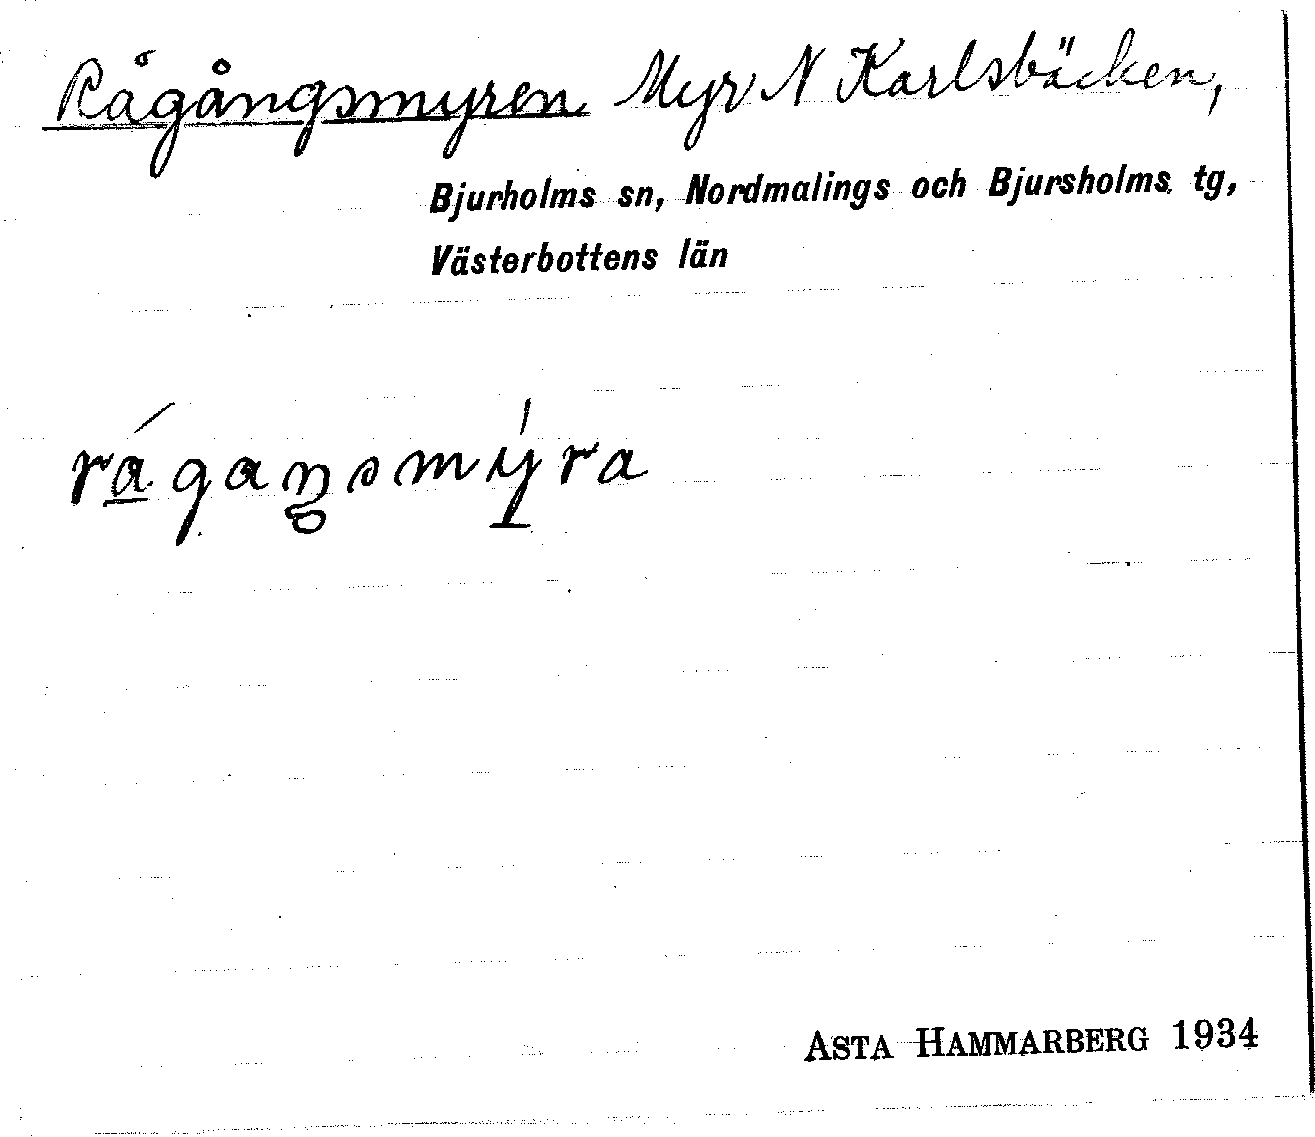 Rågångsmyren Myr N Karlsbäcken,
Bjurholms sn, Nordmalings och Bjursholms tg,
Västerbottens län
rágaŋsmýra
ASTA HAMMARBERG 1934